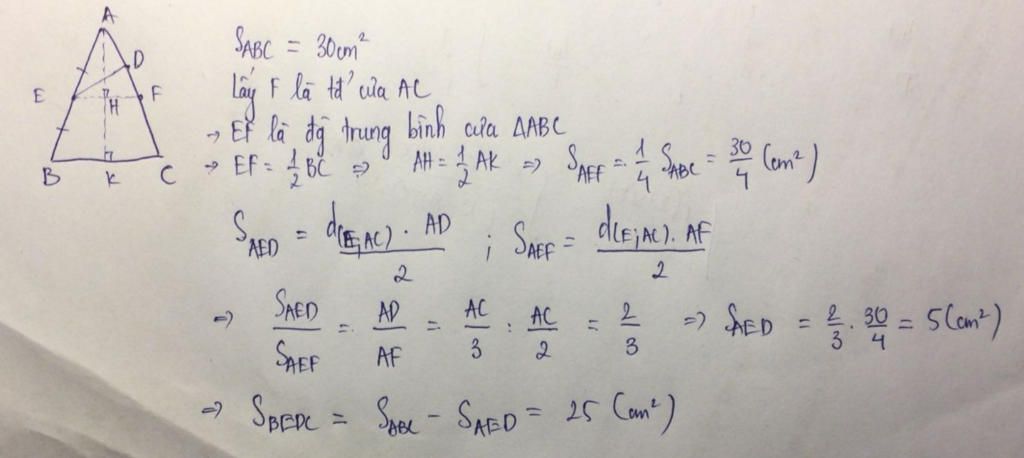 A
D
E
H
F
B
K
C
S_ABC = 30cm²
Lấy F là tđ' của AC
→ EF là đg trung bình của ΔABC
→ EF = 1/2 BC ⇒ AH = 1/2 AK ⇒ S_AEF = 1/4 S_ABC = 30/4 (cm²)
S_AED = d(E;AC) . AD / 2 ; S_AEF = d(E;AC) . AF / 2
⇒ S_AED / S_AEF = AD / AF = AC/3 : AC/2 = 2/3 ⇒ S_AED = 2/3 . 30/4 = 5 (cm²)
⇒ S_BEDC = S_ABC - S_AED = 25 (cm²)